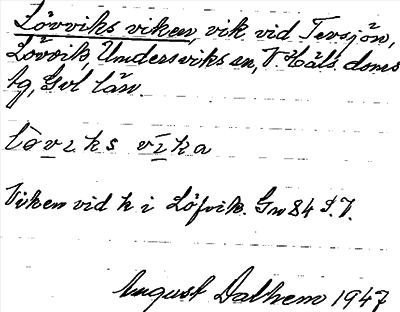 Lövviks viken, vik vid Tevsjön,
Lövvik, Undersviks sn, V. Häls. doms
tg, Gvl län.
lövıks vīka
Viken vid k i Löfvik. Gn 84 S.V.
August Dalhem 1947